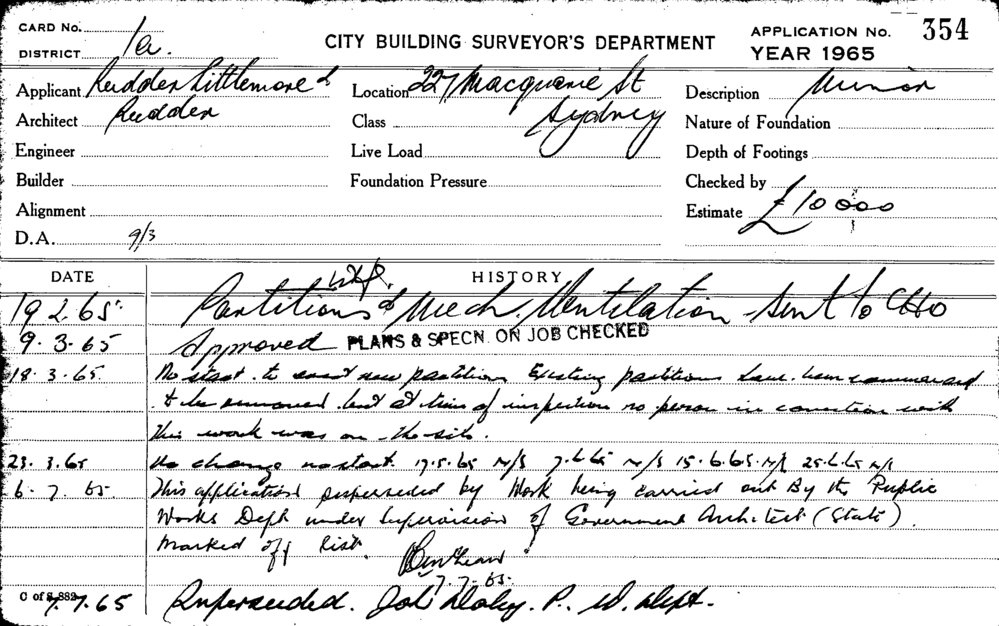 CARD No.
DISTRICT 1a.
CITY BUILDING SURVEYOR'S DEPARTMENT
APPLICATION No. 354
YEAR 1965
Applicant Rudder Littlemore &
Architect Rudder
Engineer
Builder
Alignment
D.A. 9/3
Location 227 Macquarie St
Class Sydney
Live Load
Foundation Pressure
Description Minor
Nature of Foundation
Depth of Footings
Checked by
Estimate £10000
DATE HISTORY
19 2.65 Partitions & Mech. Ventilation sent to CHO
9. 3. 65 Approved PLANS & SPECN. ON JOB CHECKED
18. 3. 65. No start to erect new partition Existing partitions have been commenced
to be removed but at time of inspection no person in conection with
this work was on the site.
23. 3. 65 No change no start. 17.5.65 N/S 7.6.65 N/S 15.6.65. N/S 25.6.65 N/S
6. 7. 65. This application superseded by Work being carried out By the Public
Works Dept under Supervision of Government Architect (State).
Marked off list.
7.7.65.
7.7.65 Superseded. Job P. W. Dept.